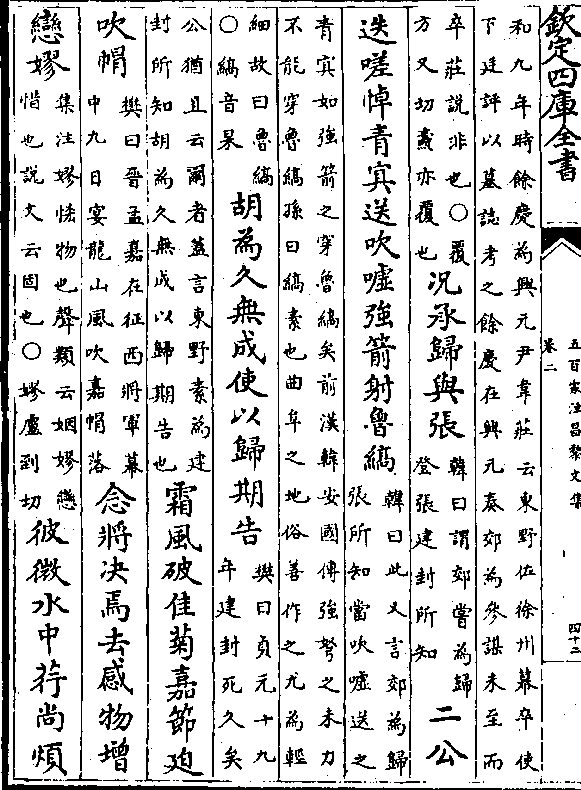 欽定四庫全書
五百家注昌黎文集
卷二
四十二
和九年時餘慶為興元尹韋莊云東野佐徐州幕卒使
下廷評以墓誌考之餘慶在興元奏郊為參謀未至而
卒莊說非也○覆
方又切燾亦覆也
况承歸與張
韓曰謂郊嘗為歸
登張建封所知
二公
迭嗟悼青㝠送吹噓強箭射魯縞
韓曰此又言郊為歸
張所知當吹噓送之
青㝠如強箭之穿魯縞矣前漢韓安國傳強弩之末力
不能穿魯縞孫曰縞素也曲阜之地俗善作之尤為輕
細故曰魯縞
○縞音杲
胡為久無成使以歸期告
樊曰貞元十九
年建封死久矣
公猶且云爾者蓋言東野素為建
封所知胡為久無成以歸期告也
霜風破佳菊嘉節迫
吹帽
樊曰晉孟嘉在征西將軍幕
中九日宴龍山風吹嘉帽落
念將决焉去感物增
戀嫪
集注嫪恡物也聲類云姻嫪戀
惜也說文云固也○嫪盧到切
彼微水中荇尚煩